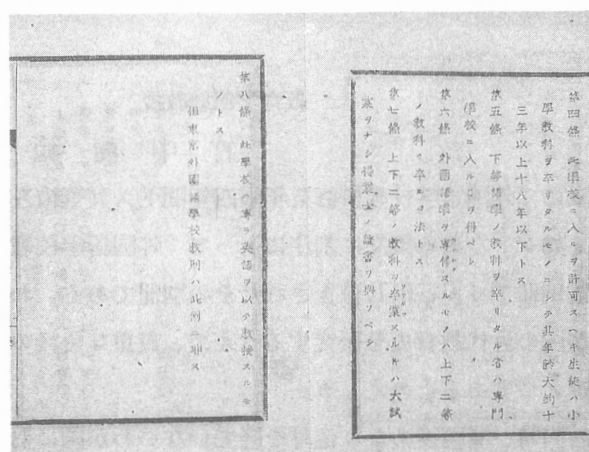 第四條 此學校ニ入ルヲ許可スヘキ生徒ハ小
學教科ヲ卒リタルモノニシテ其年齡大約十
三年以上十八年以下トス
第五條 下等語學ノ教科ヲ卒リタル者ハ專門
學校ニ入ルヲ得ベシ
第六條 外國語學ヲ專修スルモノハ上下二等
ノ教科ヲ卒ルヲ法トス
第七條 上下二等ノ教科ヲ卒業スルトキハ大試
業ヲナシ得業士ノ證書ヲ與フベシ
第八條 此學校ハ專ラ英語ヲ以テ教授スルモ
ノトス
但東京外國語學校教則ハ此例ニ非ス